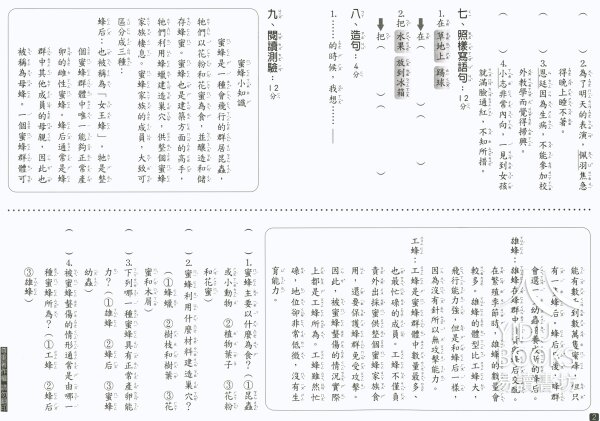 ( )2.為了明天的表演，佩羽焦急
得晚上睡不著。
( )3.恩廷因為生病，不能參加校
外教學而覺得掃興。
( )4.小志非常內向，一見到女孩
就滿臉通紅，不知所措。
七、照樣寫語句：12分
1.在草地上 踢球
➡在( )( )
2.把水果 放到冰箱
➡把( )( )
八、造句：4分
1.……的時候，我想……——
九、閱讀測驗：12分
蜜蜂小知識
蜜蜂是一種會飛行的群居昆蟲，
牠們以花粉和花蜜為食，並釀造和儲
存蜂蜜。蜜蜂也是建築方面的高手，
牠們利用蜂蠟建造巢穴，供整個蜜蜂
家族棲息。蜜蜂家族的成員，大致可
區分成三種：
蜂后：也被稱為「女王蜂」，牠是整
個蜜蜂群體中唯一能夠正常產
卵的雌性蜜蜂。蜂后通常是蜂
群中其他成員的母親，因此也
被稱為母蜂。一個蜜蜂群體可
能有數千到數萬隻蜜蜂，但只
有一隻蜂后。蜂后死後，蜂群
會選
雄蜂：雄蜂在蜂群中
在繁殖季節時，雄蜂的數量會
較多。雄蜂的體型比工蜂大，
飛行能力強，但是和蜂后一樣，
因為沒有針所以無攻擊能力。
工蜂：工蜂是蜜蜂群體中數量最多、
也最忙碌的成員。工蜂不僅負
責外出採蜜供整個蜜蜂家族食
用，還要保護蜂群免受攻擊。
因此，被蜜蜂螫傷的情況實際
上都是工蜂所為。工蜂雖然忙
碌，地位卻非常低微，沒有生
育能力。
( )1.蜜蜂主要以什麼為食？(①昆蟲
或小動物 ②植物葉子 ③花粉
和花蜜)
( )2.蜜蜂利用什麼材料建造巢穴？
(①蜂蠟 ②樹枝和樹葉 ③花
蜜和木屑)
( )3.下列哪一種蜜蜂具有正常產卵能
力？(①雄蜂 ②蜂后 ③蜜蜂
幼蟲)
( )4.被蜜蜂螫傷的情形通常是由哪一
種蜜蜂所為？(①工蜂 ②蜂后
③雄蜂)
2